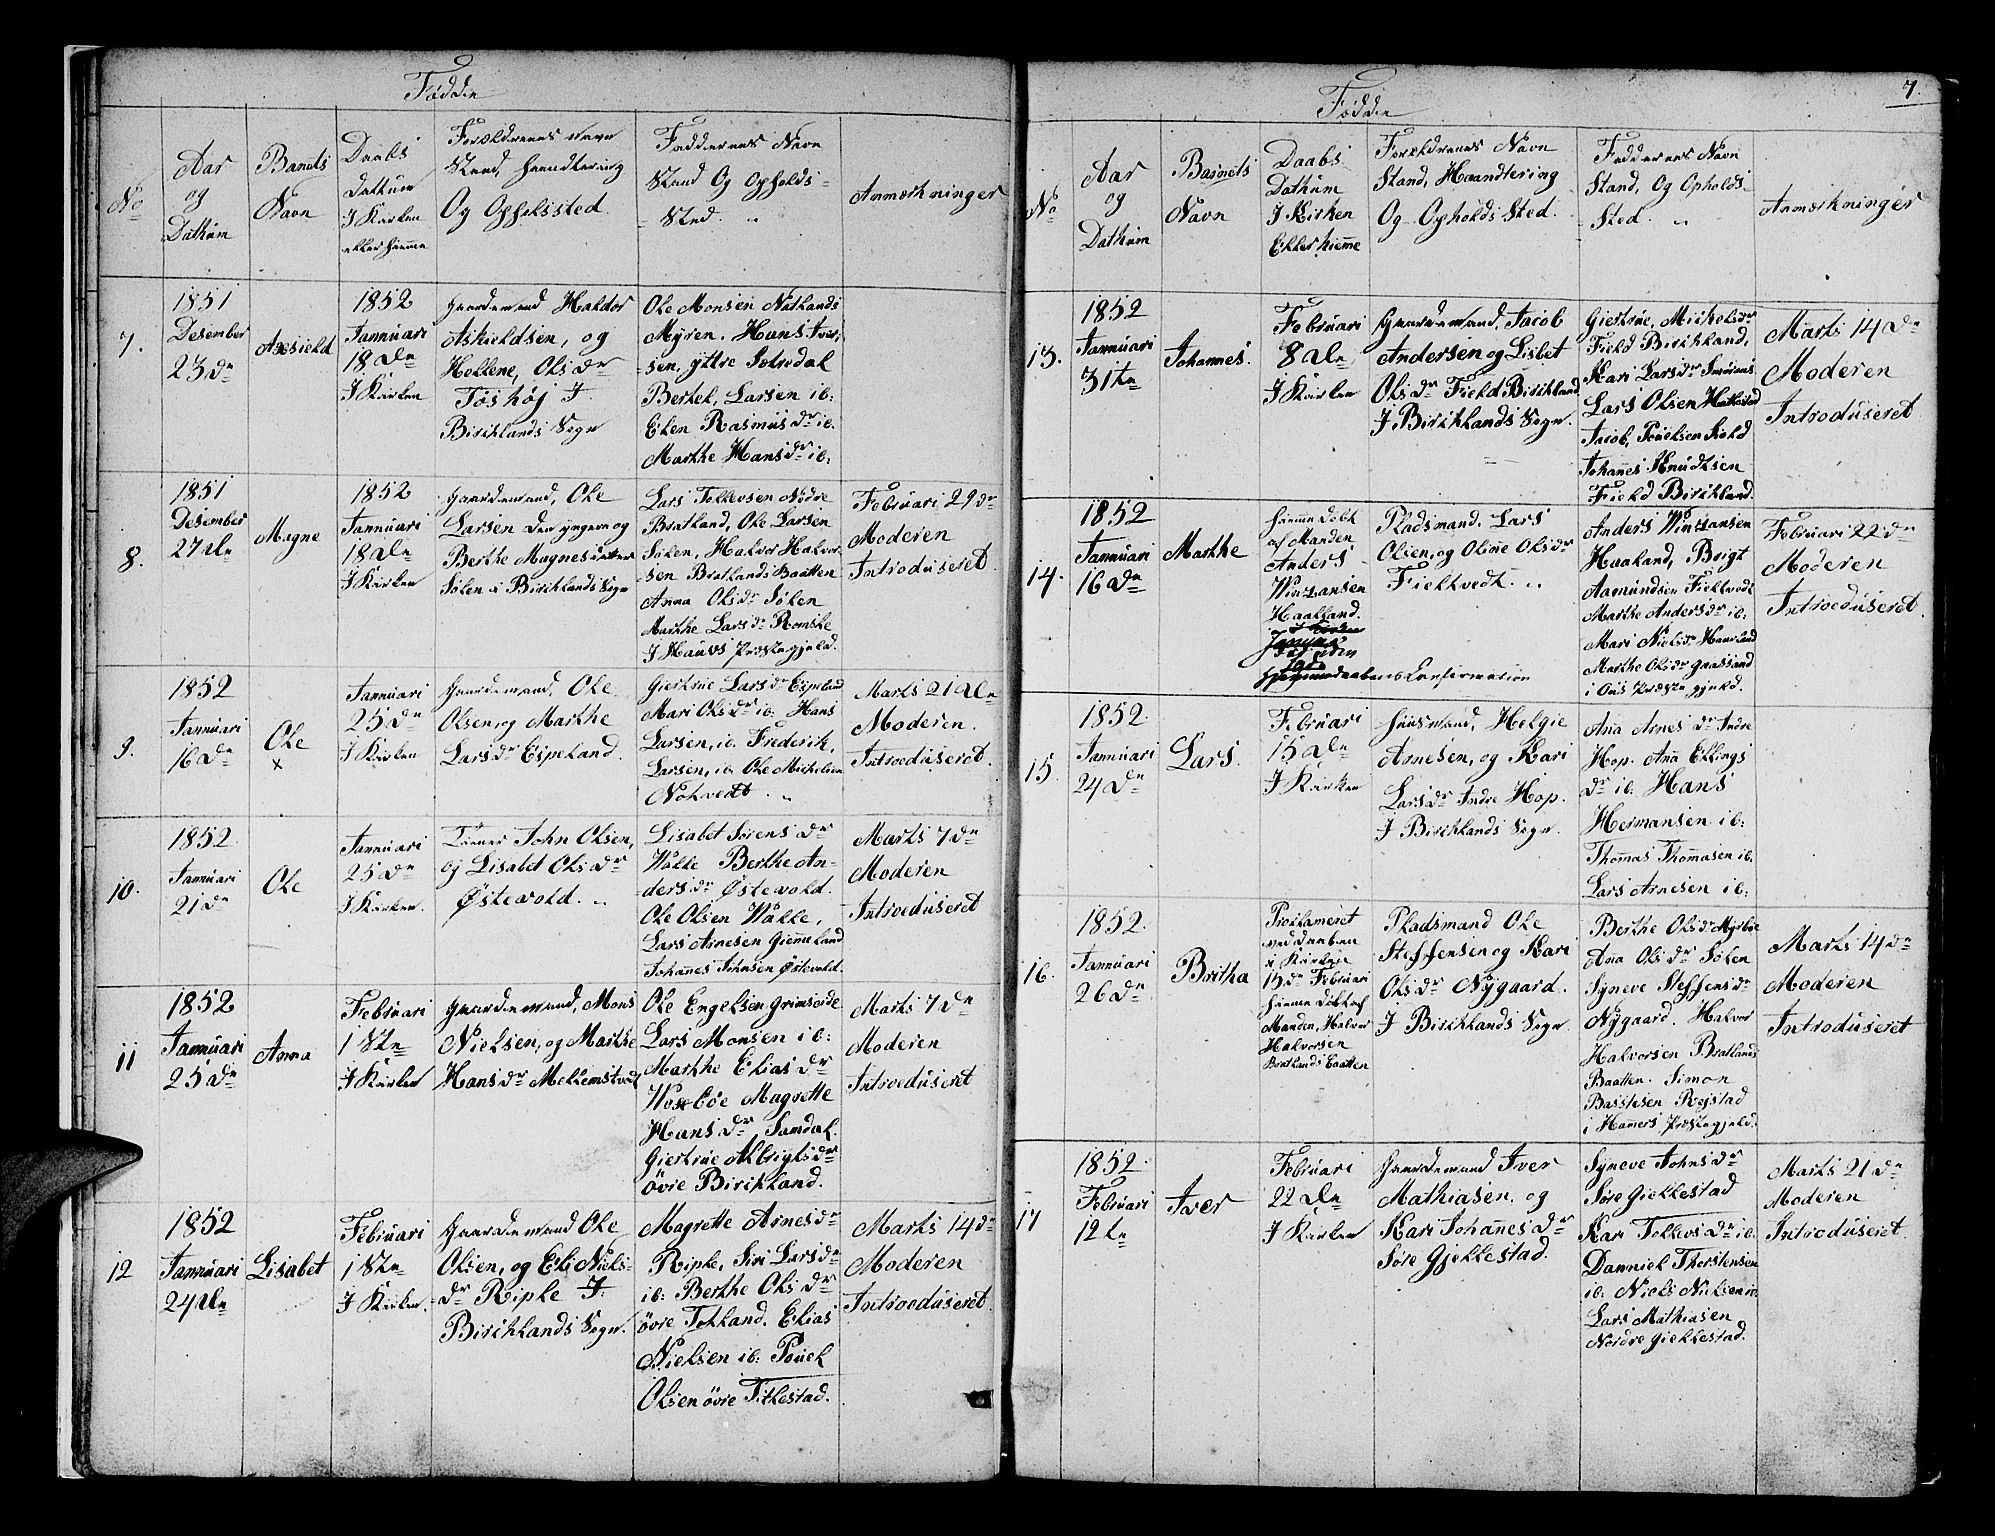 Fødde
No
Aar
og
Dathum
Barnets
Navn
Daabs
Dathum
I Kirken
eller hiemme
Forældrenes Navn
Stand, Haandtering
Og Opholssted.
Faddernes Navn
Stand Og Opholds-
-Sted.
Anmærkninger
7.
1851
Desember
23 de
1852
Jannuari
18 de
I Kirken
Gaardemand Haldor
Askieldsen, og
Hellene, Ols dr
Birchlands Sogn
Ole Monsen Nætlands
Myren. Hans Iver,
-sen, yttre Sætredal
Berhel, Larsen ib:
Elen Rasmus dr ib.
Marthe Hans dr ib:
8.
1851
Desember
27 de
Magne
1852
Jannuari
18 de
I Kirken
Gaardemand, Ole
Larsen den yngere og
Berthe Magnesdatter
Solen i Birchlands Sogn
Lars Tollevsen Nedre
Bratland, Ole Larsen
Solen, Halvor Halvor-
-sen Bratlands Baatten
Anna Ols dr Solen
Marthe Lars dr Romslo
I Hauvs Præstegjeld.
Februari 29 de
Moderen
Introduseret.
9.
1852
Jannuari
16 de
Ole
x
Jannuari
25 de
I Kirken
Gaardemand, Ole
Olsen, og Marthe
Lars dr Espeland
Giertrue Lars dr Espeland
Mari Ols dr ib. Hans
Larsen, ib. Frederik,
Larsen, ib. Ole Michelsen
Marts 21 de
Moderen.
Introduseret.
10.
1852.
Jannuari
21 de
Ole
Jannuari
25 de
I Kirken.
John Olsen,
og Lisabet Ols dr
Østevold.
Lisabet Sørens dr
Valle Berthe An-
ders dr Østevold.
Ole Olsen Valle,
Lars Arnesen Giemeland
Johannes Johnsen Østevold.
Marts 7 de
Moderen
Introduseret
11
1852
Jannuari
25 de
Anna
Februari
1 Ste
I Kirken
Gaardemand, Mons
Nielsen, og Marthe
Hans dr Mellemstvedt
Ole Engelsen Grimseide
Lars Monsen ib:
Marthe Elias dr
Magrette
Hans dr Samdal.
Giertrue Albrigts dr
øvre Birchland.
Marts 7 de
Moderen
Introduseret
12
1852
Jannuari
24 de
Lisabet
Februari
1 Ste
I Kirken.
Gaardemand Ole
Olsen, og Eli Niels-
dr Riple I
Birchlands Sogn.
Magrette Arnes dr
Riple, Siri Lars dr
ib: Berthe Ols dr
øvre Totland. Elias
Nielsen ib: Pouel
Olsen øvre Titlestad.
Marts 14 de
Moderen
Introduseret.
7.
Fødde
No
Aar
og
Dathum
Barnets
Navn
Daabs
Dathum
I Kirken
Eller hieme
Forældrenes Navn
Stand, Haandtering
Og Opholds Sted.
Faddernes Navn
Stand, Og Opholds.
Sted.
Anmærkninger
13.
1852
Jannuari
31 te
Johannes.
Februari
8 de
I Kirken
Gaardemand, Jacob
Andersen og Lisbet
Ols dr Field Birchland
I Birchlands Sogn.
Giertrue, Michels dr
Field Birchland,
Kari Lars dr Smøraas
Lars Olsen
Jacob, Pouelsen Field
Johannes Knudtsen
Field Birchland.
Marts 14 de
Moderen
Introduseret.
14.
1852
Jannuari
16 de
Marthe
hieme døbt
af Manden
Anders
Winsjansen
Haakland.
Hjemmedaabens Confirmation
Pladsmand. Lars
Olsen, og Oline Ols dr
Fieltvedt.
Anders Winsjansen
Haaland, Brigt
Aamundsen Fieltvedt
Marthe Anders dr ib:
Mari Niels dr
Marthe Ols dr Gaassand
i Ous Præstegjeld.
Februari 22 de
Moderen
Introduseret.
15.
1852.
Jannuari
24 de
Lars.
Februari
15 de
I Kirken
Huusmand, Helgie
Arnesen, og Kari
Lars dr Indre Hop.
I Birchlands Sogn.
Ana Arnes dr Indre
Hop. Ana Ellings
dr ib. Hans
Hermansen ib:
Thomas Thomasen ib.
Lars Arnesen ib:
16.
1852.
Jannuari
26 de
Britha
Proclameret
ved daaben
i Kirken
15 de Februari
hieme døbt af
Manden, Halvor
Halvorsen
Bratlands Baatten
Pladsmand Ole
Steffensen og Kari
Ols dr Nygaard.
I Birchlands Sogn.
Berthe Ols dr Myrbøe
Ana Ols dr Solen
Syneve Steffens dr
Nygaard. Halvor
Halvorsen Bratlands
Baatten. Simon
Bastesen Rejstad
i Hamers Præstegjeld.
Marts 14 de
Moderen
Introduseret
17
1852.
Februari
12 te
Iver
Februari
22 de
I Kirken
Gaardemand Iver
Mathiasen. og
Kari Johannes dr
Søre Gjellestad.
Syneve Johns dr
Søre Giellestad
Kari Tollevs dr ib.
Danniel Thorstensen
ib. Niels Nielsen ib
Lars Mathiasen
Nordre Giellestad.
Marts 21 de
Moderen
Introduseret.